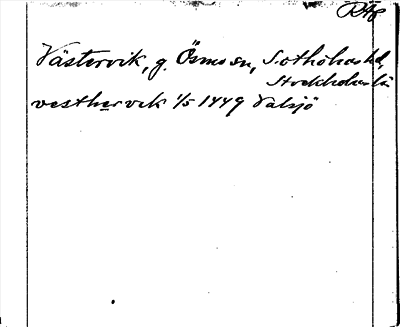 RAp
Västervik, g. Ösmo sn, Sotholms hd,
Stockholms län
westhervik 1/5 1449 Valsjö